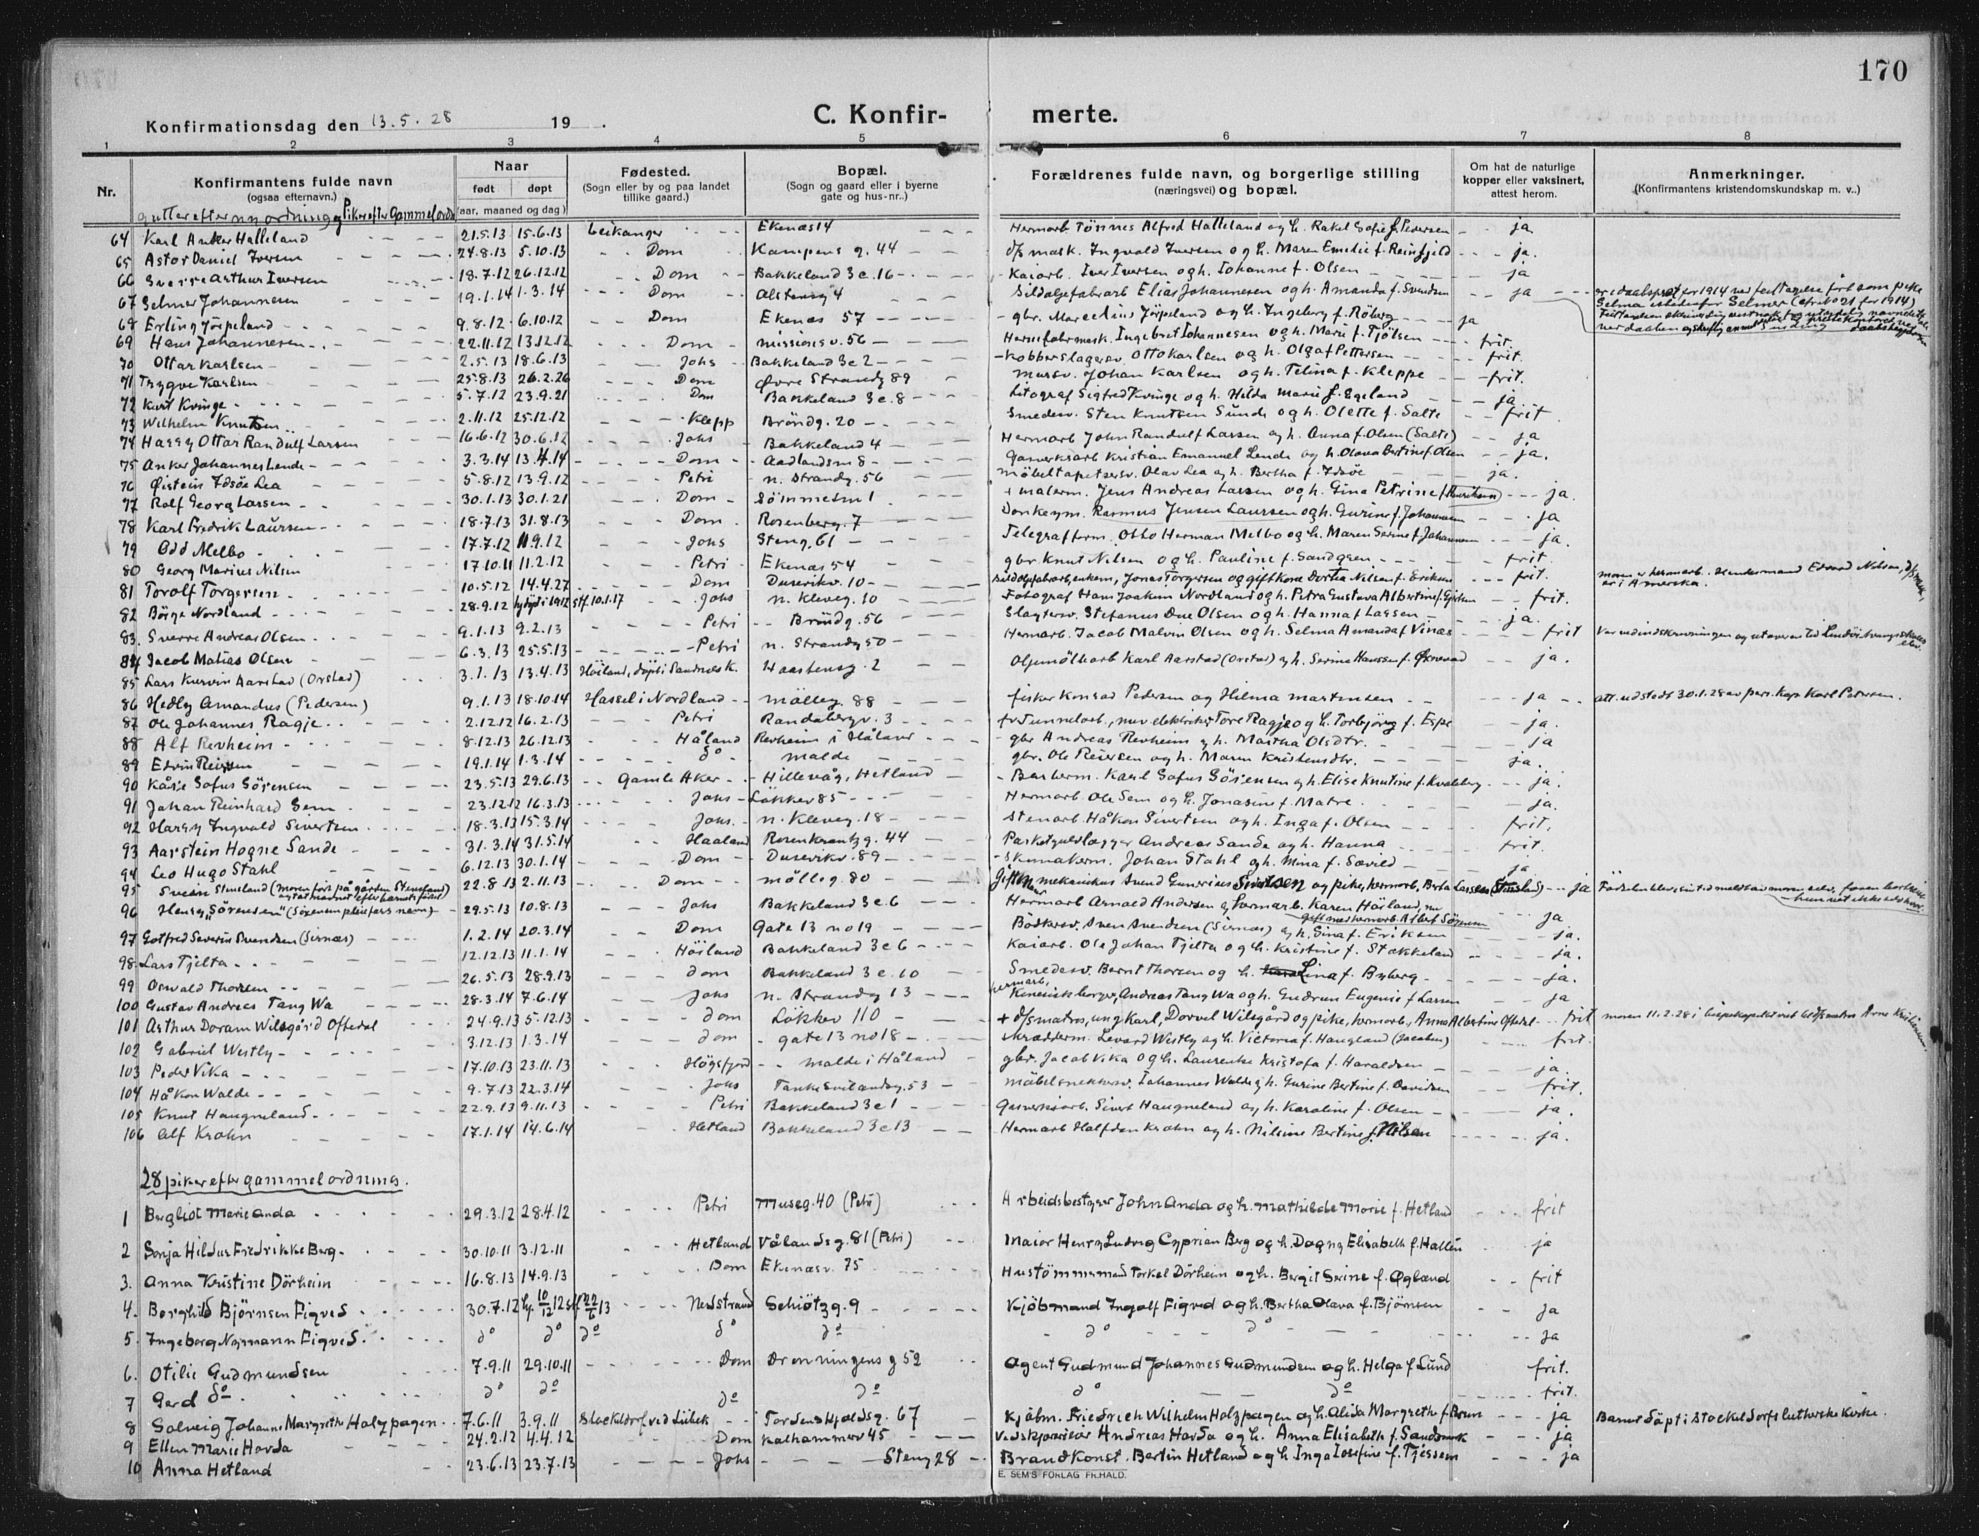 170
Konfirmationsdag den 13.5.28 19 .
C. Konfir- merte.
1 2 3 4 5 6 7 8
Nr. Konfirmantens fulde navn (ogsaa efternavn.) Naar født døpt (aar, maaned og dag) Fødested. (Sogn eller by og paa landet tillike gaard.) Bopæl. (Sogn og gaard eller i byerne gate og hus-nr..) Forældrenes fulde navn, og borgerlige stilling (næringsvei) og bopæl. Om hat de naturlige kopper eller vaksinert, attest herom. Anmerkninger. (Konfirmantens kristendomskundskap m. v..)
gutter efter ny ordning og Piker efter Gammel ordn
64 Karl Anker Halleland 21.5.13 15.6.13 Leikanger Ekenæs 14 Hermarb Tönnes Alfred Halleland og h. Rakel Sofie f. Pedersen ja
65 Astor Daniel Iversen 24.8.13 5.10.13 Dom Kampens g. 44 d/s mask. Ingvald Iversen og h. Maren Emelie f. Reinfjeld ja.
66 Sverre Arthur Iversen 18.7.12 26.12.12 Dom Bakkeland 3 c. 16 Kaiarb. Iver Iversen og h. Johanne f. Olsen ja
67 Selmer Johannesen 19.1.14 1.3.14 Dom Alstensg 4 Sildoljefabrarb Elias Johannesen og h. Amanda f. Svendsen ja
68 Erling Jörpeland 9.8.12 6.10.12 Dom Ekenæs 57 gbr. Marcelius Jörpeland og h. Ingeborg f. Röberg ja
69 Hans Johannesen 22.11.12 13.12.12 Dom missionsv. 56 Hermefabrmesk. Ingebret Johannesen og h. Marie f. Tjölsen frit.
70 Ottar Karlsen 2.5.13 18.6.13 Johs Bakkeland 3 c 2 Kobberslagersv Otto Karlsen og h. Olga f Pettersen frit.
71 Trygve Karlsen 25.8.13 26.2.26 Dom Øvre Strandg 89 mursv. Johan Karlsen og h. Telina f. Kleppe frit.
72 Kurt Kvinge 5.7.12 23.9.21 Dom Bakkeland 3 c. 8 Litograf Sigfred Kvinge og h. Hilda Marie f. Egeland ja
73 Wilhelm Knutsen 2.11.12 25.12.12 Klepp Bröndg. 20 Smedesv. Sten Knutsen Sunde og h. Olette f. Salte frit
74 Harry Ottar Randulf Larsen 16.6.12 30.6.12 Johs Bakkeland 4 Hermarb John Randulf Larsen og h. Anna f. Olsen (Salte) ja
75 Anker Johannes Lende 3.3.14 13.4.14 Dom Aadlandsm 8 Gasverksarb Kristian Emanuel Lende og h. Olava Bertine f. Olsen ja.
76 Øistein Idsöe Lea 5.8.12 13.9.12 Petri n. Strandg. 56 möbeltapetsersv. Olav Lea og h. Bertha f. Idsöe ja.
77 Rolf Georg Larsen 30.1.13 30.1.21 Dom Sömmesm 1 + malerm. Jens Andreas Larsen og h. Gina Petrine f. ja.
78 Karl Fredrik Laursen 18.7.13 31.8.13 Dom Rosenberg. 7 Donkeym. Rasmus Jensen Laursen og h. Gurine f. Johannesen ja
79 Odd Melbo 17.7.12 11.9.12 Johs Steng. 61 Telegrafform. Otto Herman Melbo og h. Maren Serine f. Johannesen ja.
80 Georg Marius Nilsen 17.10.11 11.2.12 Petri Ekenæs 54 gbr Knut Nilsen og h. Pauline f. Sandgren frit.
81 Torolf Torgersen 10.5.12 14.4.27 Dom Dusevikv. 10 Jonas Torgersen og gift kone Dorthea Nilsen f. Eriksen frit.
82 Börge Nordland 28.9.12 stf. 10.1.17 Johs n. Kleveg. 10 Fotograf Hans Joakim Nordland og h. Petra Gustava Albertine f. frit.
83. Sverre Andreas Olsen 9.1.13 9.2.13 Petri Bröndg. 56 Slagtersv. Stefanus Due Olsen og h. Hanna f Larsen ja.
84 Jacob Matias Olsen 6.3.13 25.5.13 Petri n. Strandg 50 Hermarb. Jacob Malvin Olsen og h. Selma Amanda f Vines frit
85 Lars Kurvin Aarstad (Orstad) 3.1.13 13.4.13 Höiland, döpt i Sandnes K. Haastensg. 2 Oljemöllearb Karl Aarstad (Orstad) og h. Serine Hanssen f. ja.
86 Hedly Amandus (Pedersen) 9.1.13 18.10.14 Hassel i Nordland mölleg. 88 fisker Konrad Pedersen og Hilma Martinsen ja att. udstedt 30.1.28 av pers. Kap. Karl Petersen.
87 Ole Johannes Ragje 2.12.12 16.2.13 Petri Randabergv. 3 + v Tunnelarb., nuv elektriker Tore Ragje og h. Torbjörg f. Espe ja.
88 Alf Revheim 8.12.13 26.12.13 Håland Revheim i Håland gbr Andreas Revheim og h. Martha Olsdtr. ja
89 Edvin Reiersen 19.1.14 1.3.14 do malde gbr. Ole Reiersen og h. Maren Kristensdtr. ja.
90 Kåre Sofus Sörensen 23.5.13 29.6.13 Gamle Aker Hillevåg, Hetland Barberm. Karl Sofus Sörensen og h. Elise Knutine f. Kvaleberg ja.
91 Johan Reinhard Sem 23.12.12 16.3.13 Johs Lökkev 85 Hermarb Ole Sem og h. Jonasine f. Matre. ja.
92 Harry Ingvald Sivertsen 18.3.13 15.3.14 Johs. n. Kleveg. 18 Stenarb Håkon Sivertsen og h. Inga f. Olsen frit.
93 Aarstein Hogne Sande 31.3.14 31.5.14 Haaland Rosenkrantzg. 44 Parketgulvlægger Andreas Sande og h. Hanna frit.
94 Leo Hugo Stahl 6.12.13 30.1.14 Dom Dusevikv. 89 Skinnakerm. Johan Stahl og h. Mina f. Sævild ja
95 Svein Steneland 22.8.13 2.11.13 Dom mölleg. 80 Gift mekanikus Svend Gunerius Sivertsen og pike, hermarb, Berta Larsen ja
96 Henry "Sörensen" (Sörensen pleifars navn) 29.5.13 10.8.13 Johs Bakkeland 3 c. 6 Hermarb Arnold Andersen og hermarb. Karen Höiland, nu gift med hermarb. Albert Sörensen ja
97 Gotfred Severin Svendsen (Sirnæs) 1.2.14 20.3.14 Dom Gate 13 no 19 Bödkersv. Sven Svendsen (Sirnæs) og h. Gina f. Eriksen ja.
98. Lars Tjelta 12.12.13 11.1.14 Höiland Bakkeland 3 c 6 Kaiarb. Ole Johan Tjelta og h. Kristine f. Stokkeland ja.
99 Osvald Thorsen 26.5.13 28.9.13 dom Bakkeland 3 c. 10 Smedesv. Bernt Thorsen og h. Lina f. Byberg ja.
100 Gustav Andreas Tang Wa 28.3.14 7.6.14 Johs n. Strandg 13 hermarb, Kinesisk borger, Andreas Tang Wa og h. Gudrun Eugenie f Larsen ja
101 Arthur Doram Wilsgård Oftedal 24.9.13 5.12.13 dom Lökkev 110 + d/s matros, ungkarl, Dorvel Wilsgård og pike, hermarb., Anna Albertine Oftedal frit
102 Gabriel Westly 3.12.13 1.3.14 dom gate 13 no 18 Skrædderm. Levard Westly og h. Victoria f. Haugland (Jacobsen) frit.
103 Peder Vika 17.10.13 23.11.13 Högsfjord malde i Håland gbr. Jacob Vika og h. Laurentse Kristofa f. Haraldsen ja.
104 Håkon Walde 9.7.13 22.3.14 Johs Tanke Svilandsg. 53 möbelsnekkersv. Johannes Walde og h. Gurine Bertine f. Davidsen frit.
105 Knut Haugneland 22.9.13 9.11.13 Petri Bakkeland 3 c 1 Gasverksarb. Sivert Haugneland og h. Karoline f. Olsen ja.
106 Alf Krohn 17.1.14 14.6.14 Hetland Bakkeland 3 c 13 Hermarb Halfdan Krohn og h. Nilsine Bertine f. Nilsen ja.
28 piker efter gammel ordning.
1 Bergliot Marie Anda 29.3.12 28.4.12 Petri Museg. 40 (Petri) Arbeidsbestyrer John Anda og h. Mathilde Marie f. Hetland frit
2 Sonja Hildur Fredrikke Berg 30.10.11 3.12.11 Hetland Vålandsg. 81 (Petri) Maior Henry Ludvig Cyprian Berg og h. Dagny Elisabeth f. Hallén ja
3. Anna Kristine Dörheim 16.8.13 14.9.13 Dom Ekenæsv. 75 Hustömmermand Torkel Dörheim og h. Bergit Serine f. Øgland frit
4. Borghild Björnsen Figved 30.7.12 hj. 10/12 12 stf 22/6 13 Nedstrand Schiötzg. 9 Kjöbmand Ingolf Figved og h. Bertha Olava f. Björnsen ja
5. Ingeborg Normann Figved do do do do do do do ja
6. Otilie Gudmundsen 7.9.11 29.10.11 Dom Dronningensg 52 Agent Gudmund Johannes Gudmundsen og h. Helga f. Lund frit.
7 Gerd do do do do do do do frit.
8 Solveig Johanne Margrethe Holzpagen 7.6.11 3.9.11 Stockeldorf ved Lübek Tordenskjoldsg. 67 Kjöbm. Friedrich Wilhelm Holzpagen og h. Alida Margreth f. Brun ja Barnet döpt i Stockeldorfs lutherske Kirke.
9 Ellen Marie Hovda 24.2.12 4.4.12 Dom Kalhammerv 45 Vedskjærer Andreas Hovda og h. Anna Elisabeth f. Sandsmark ja
10 Anna Hetland 23.6.13 23.7.13 Johs Steng 28 Brandkonst. Bertin Hetland og h. Inga Josefine f. Tjessem ja
E. SEM'S FORLAG FR.HALD.